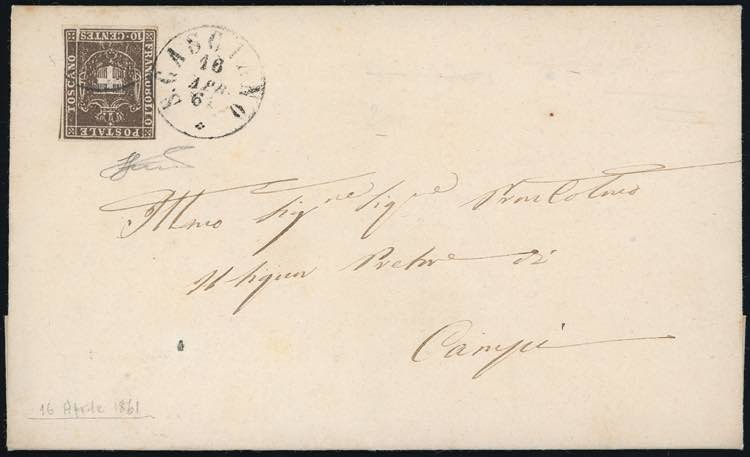 FRANCOBOLLO
POSTALE
TOSCANO
10 CENTES
S. CASCIANO
16
APR.
61
Illmo Sigre Sigre Pron Colmo
Il Signor Pretore di
Campi
16 Aprile 1861